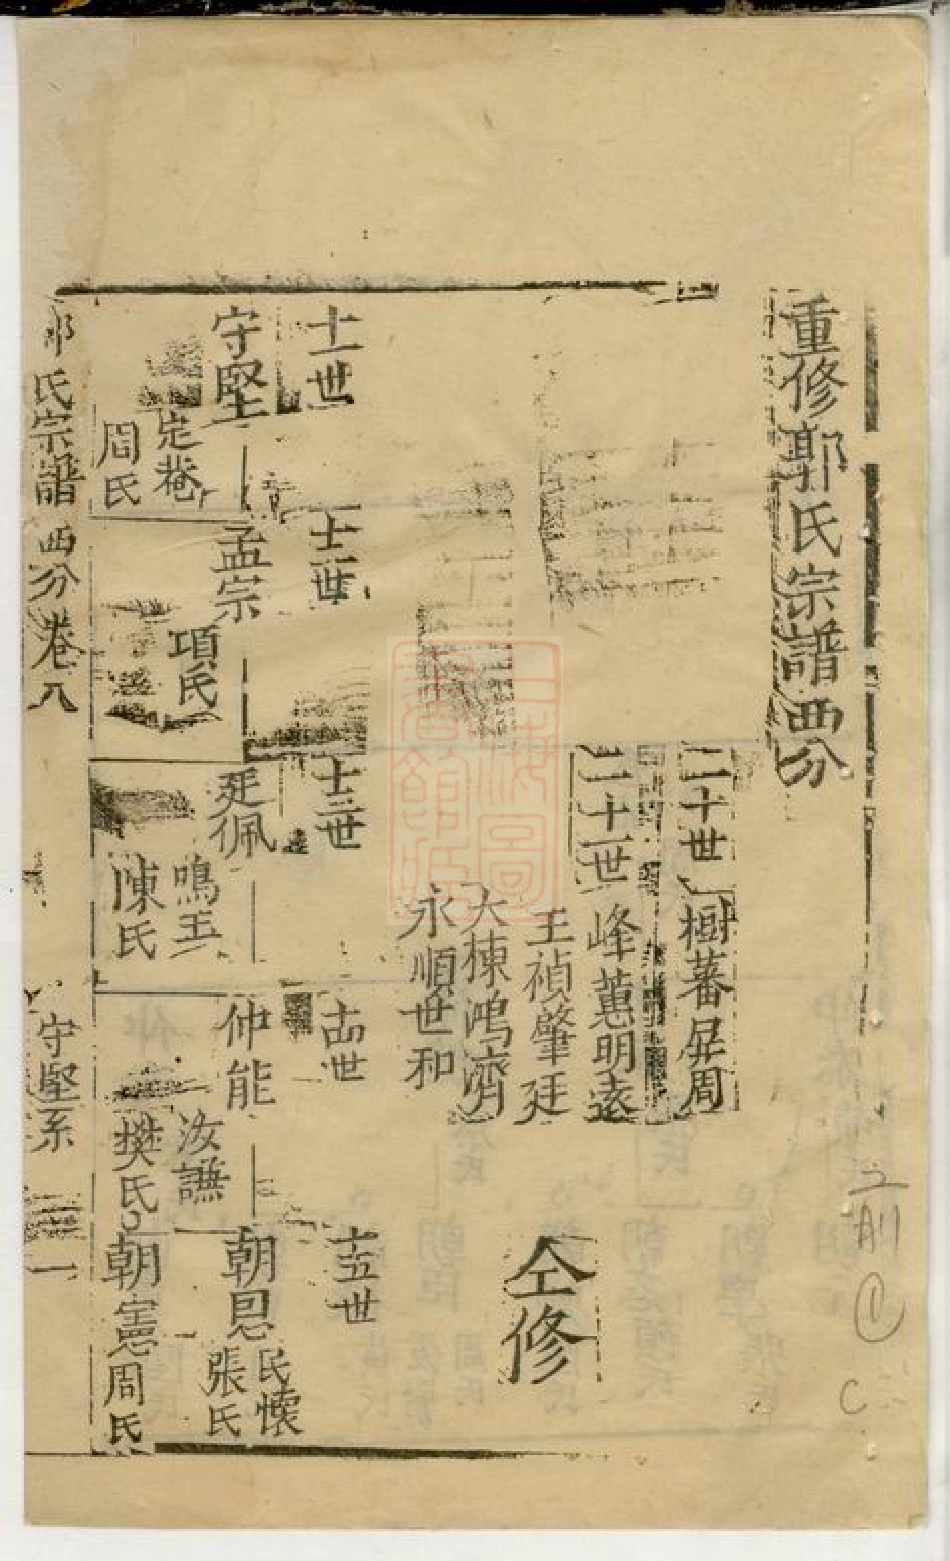 重修郭氏宗譜西分
二十世 樹蕃屏周
二十一世 峰蕙明遠
王禎肇廷
大棟鴻濟
永順世和
仝修
十一世
守堅
定菴
周氏
十二世
孟宗
項氏
十三世
延佩
鳴玉
陳氏
十四世
仲能
汝謙
樊氏
十五世
朝恩
民懷
張氏
朝憲周氏
郭氏宗譜 西分卷八 守堅系 一